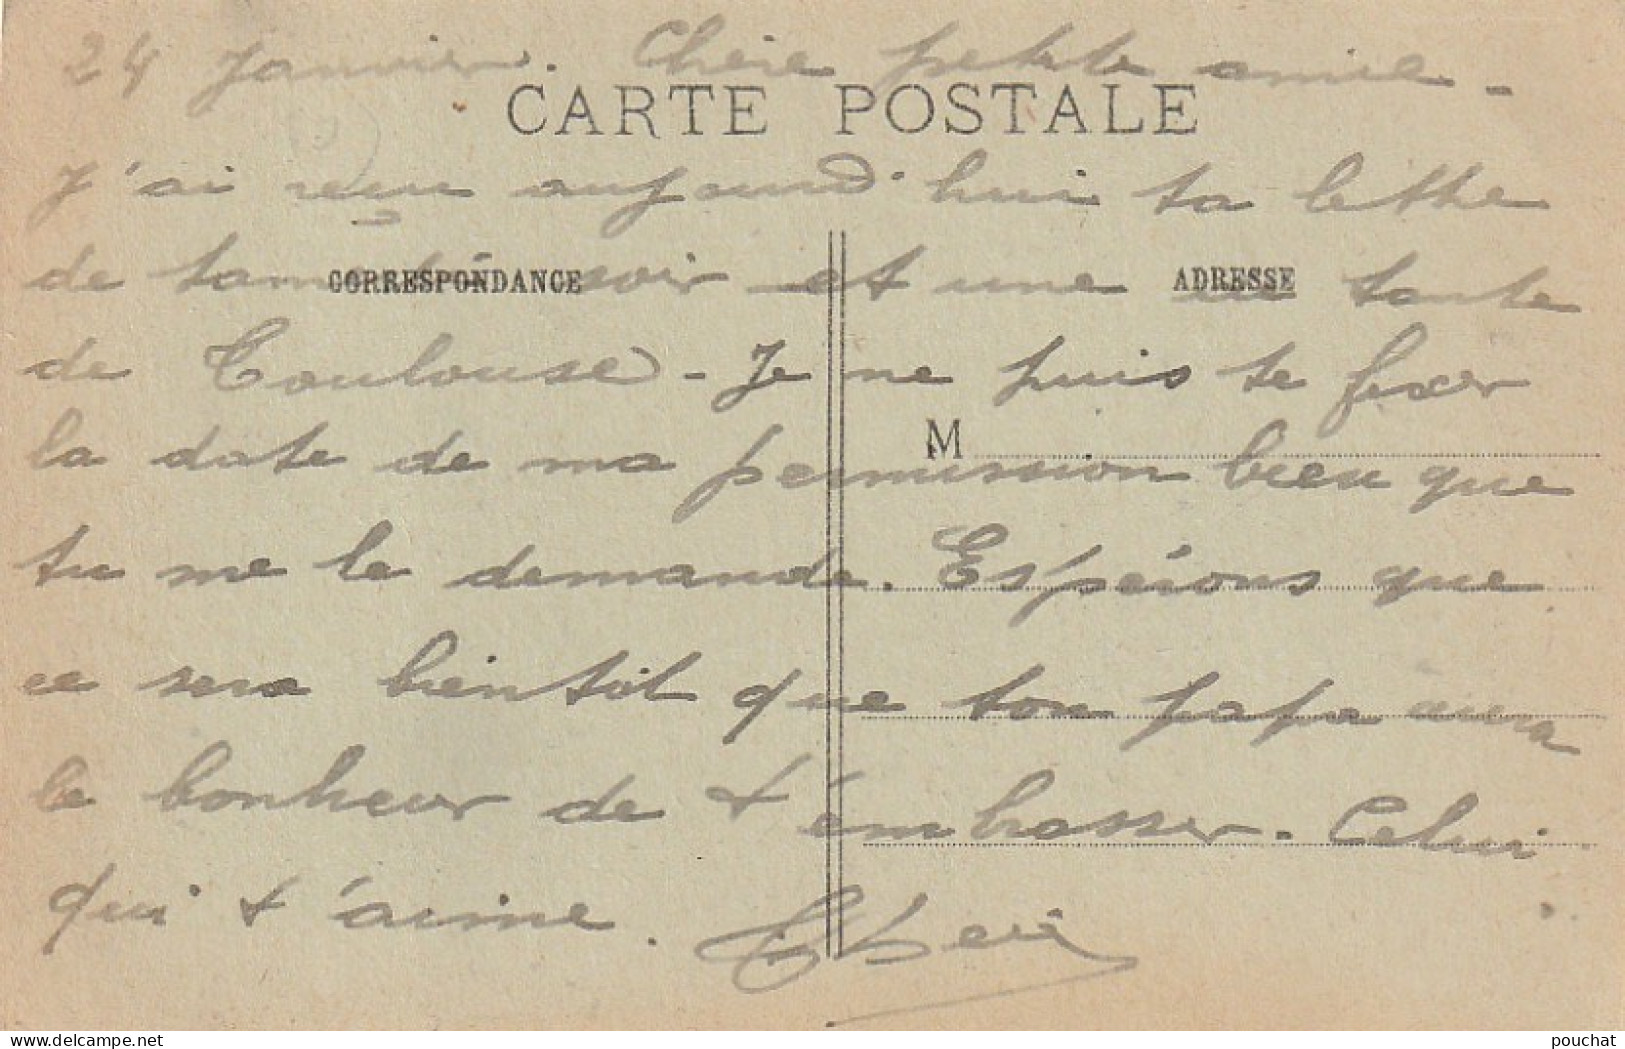 24 Janvier. Chère petite amie -
CARTE POSTALE
J'ai reçu aujourd'hui ta lettre
de samedi soir et une carte
CORRESPONDANCE
ADRESSE
de Toulouse - Je ne puis te fixer
M
la date de ma permission bien que
tu me le demande. Espérons que
ce sera bientôt que ton papa aura
le bonheur de t'embrasser. Celui
qui t'aime.
delcampe.net
pouchat